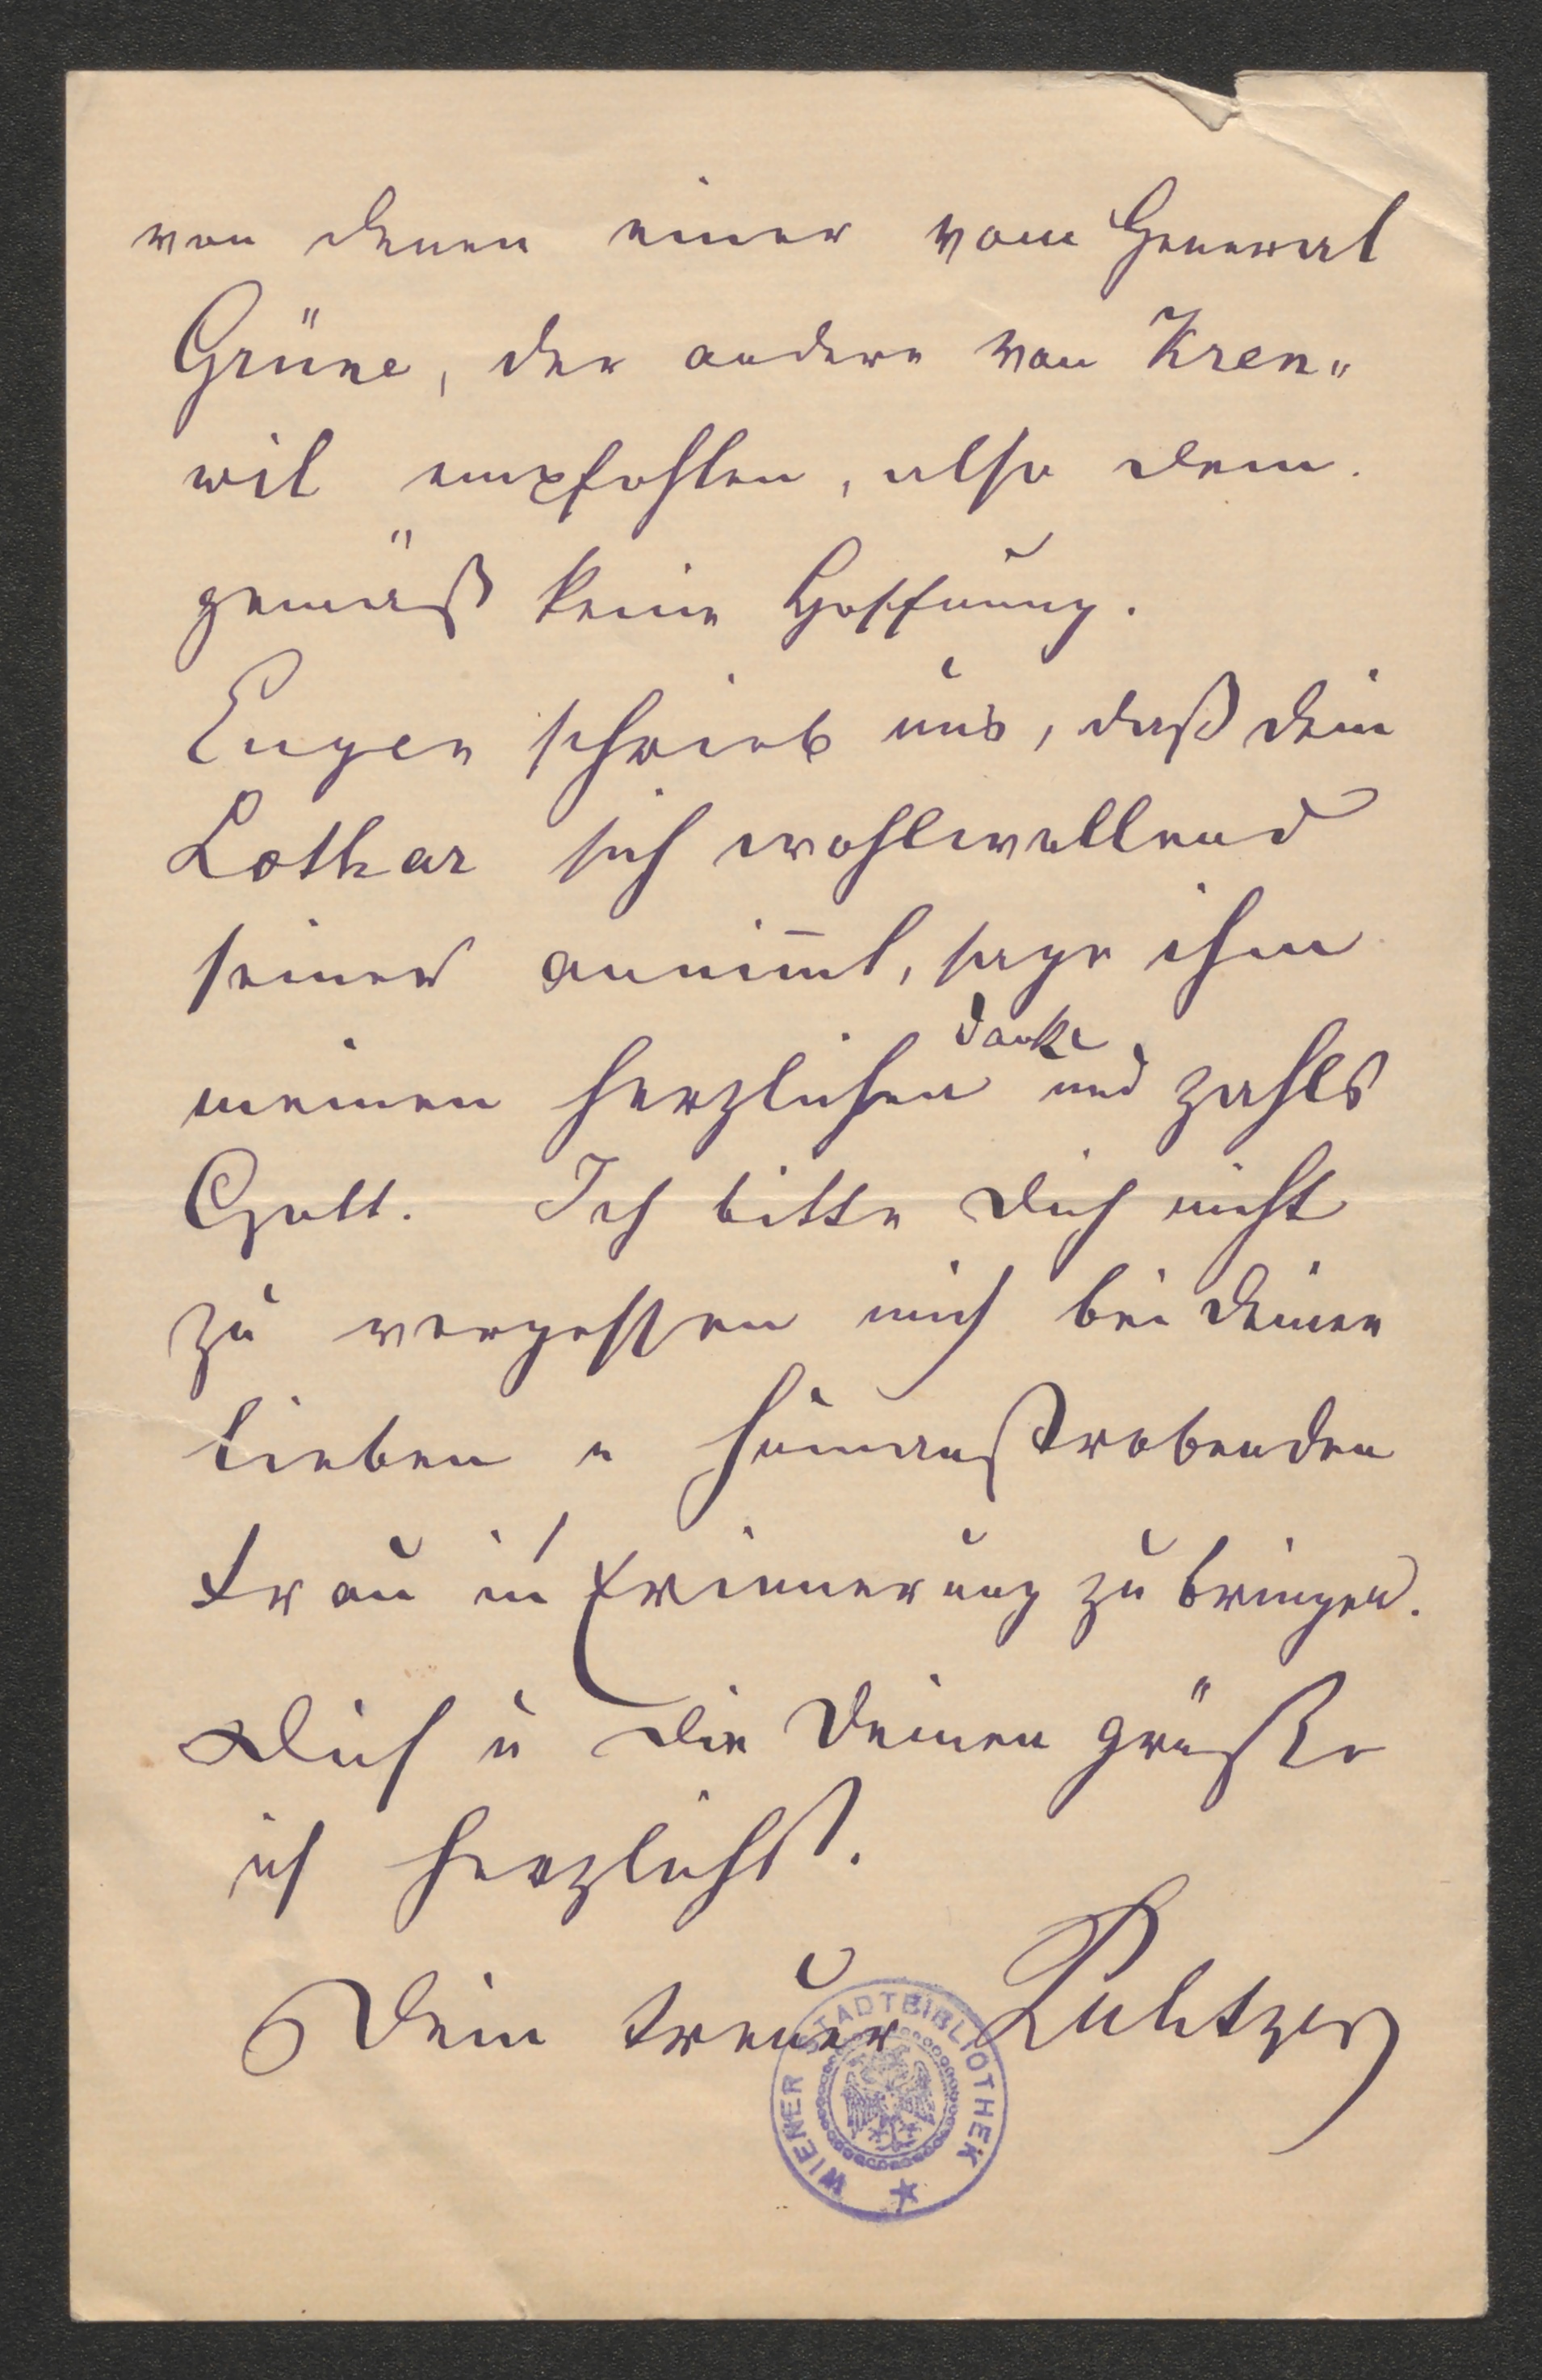 von denen einer vom General
Grüne, der andere von Kren„
wil empfohlen, also dem.
gemäß keine Hoffnung.
Eugen schrieb uns, daß dein
Lothar sich wohlwollend
seiner annim̄t, sage ihm
meinen herzlichen Dank und zahls
Gott. Ich bitte Dich nicht
zu vergessen mich bei Deiner
lieben u
Frau in Erinnerung zu bringen.
Dich u die Deinen grüße
ich herzlichst.
Dein treuer
WIENER STADTBIBLIOTHEK